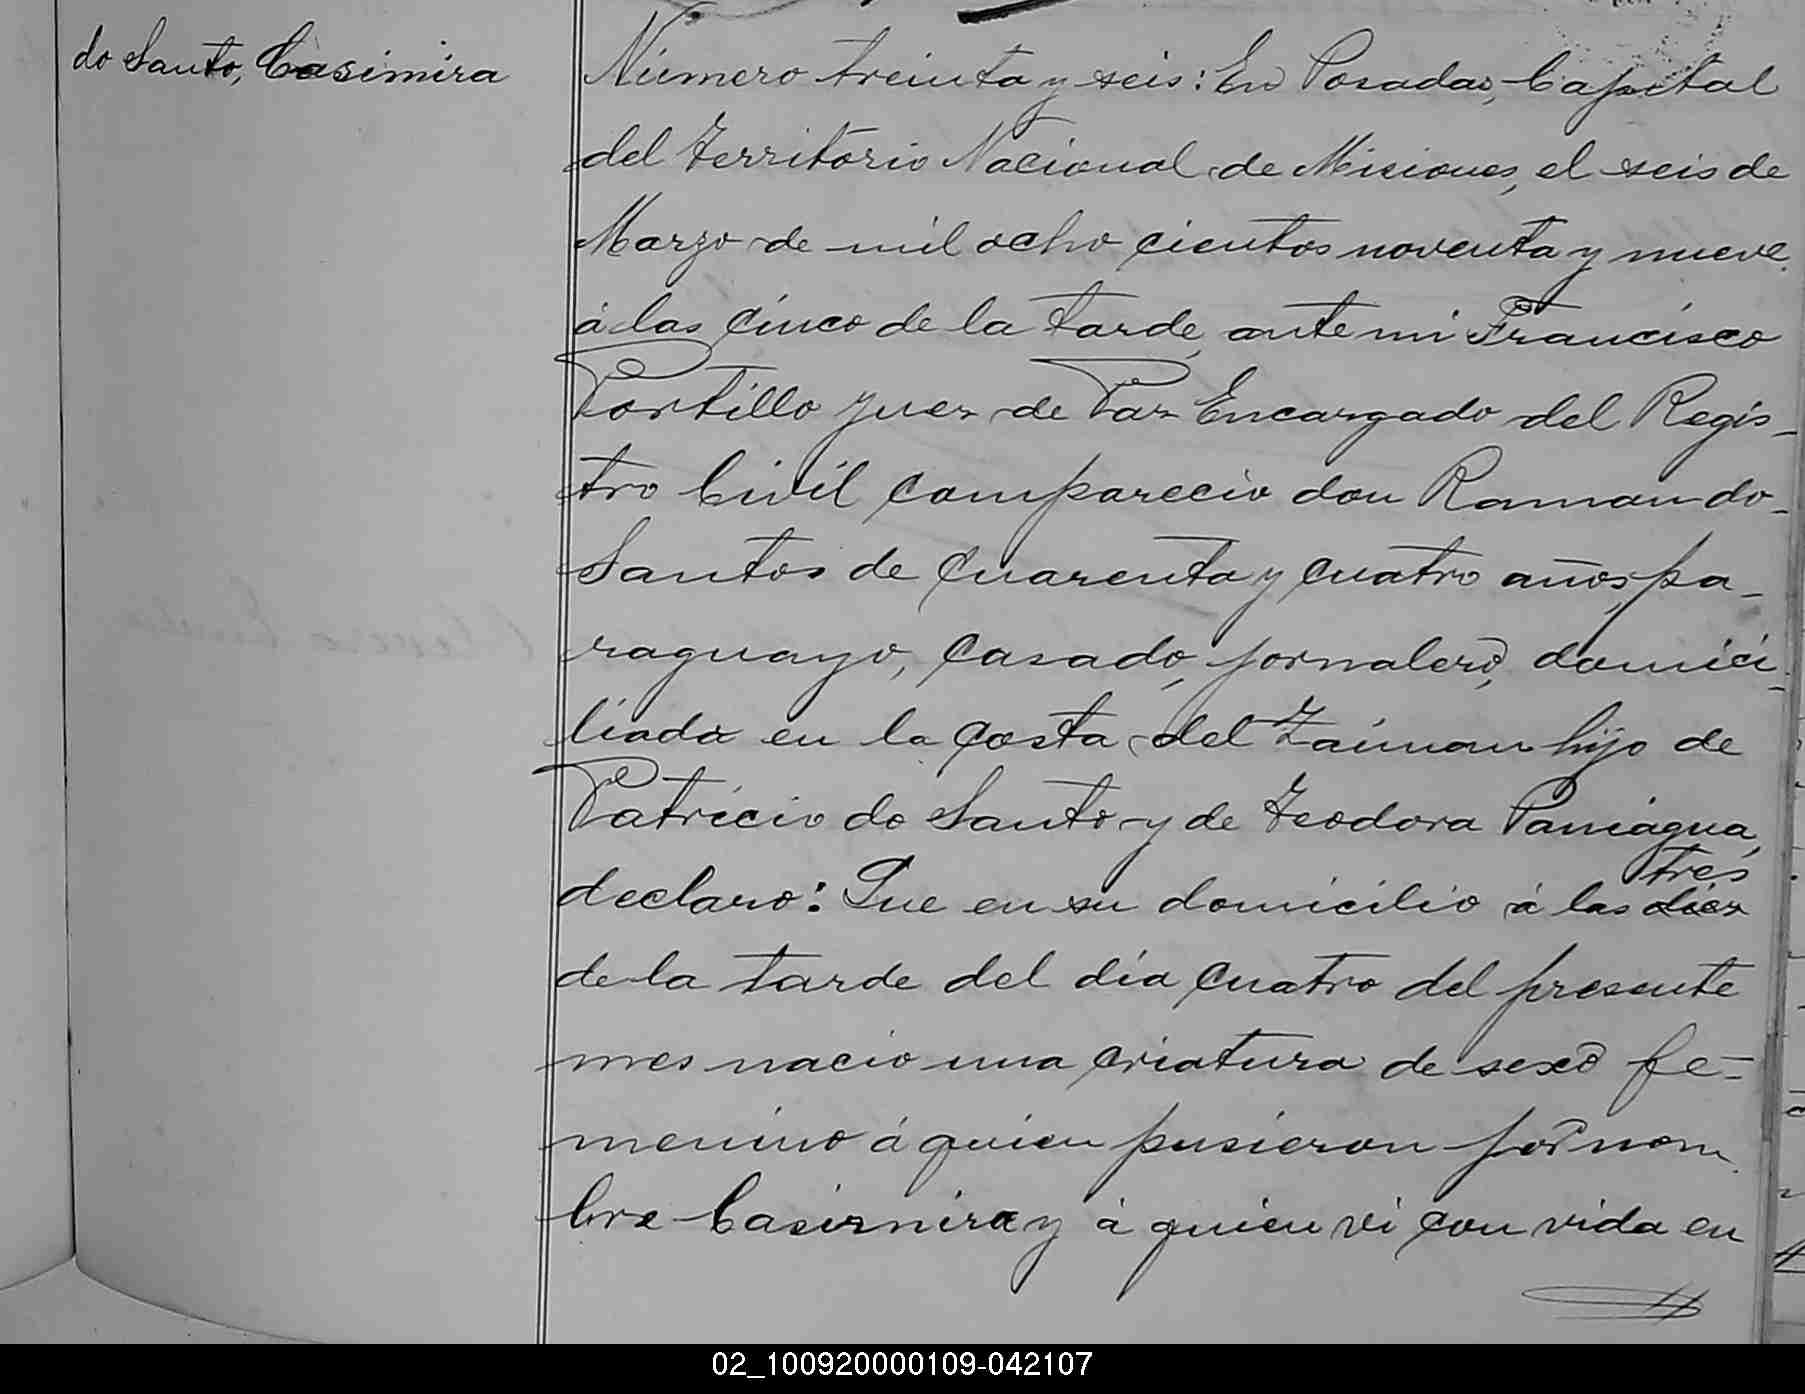 do Santo, Casimira
Número treinta y seis: En Posadas, Capital
del Territorio Nacional de Misiones, el seis de
Marzo de mil ocho cientos noventa y nueve
á las cinco de la tarde, ante mi Francisco
Portillo Juez de Paz Encargado del Regis-
tro Civil comparecio don Ramon do-
Santos de cuarenta y cuatro años, pa-
raguayo, casado, jornalero, domici-
liado en la costa del Zaiman hijo de
Patricio do Santo y de Teodora Paniagua,
tres
declaro: Que en su domicilio á las diez
de la tarde del dia cuatro del presente
mes nacio una criatura de sexo fe-
menino á quien pusieron por nom
bre Casimira y á quien vi con vida en
02_100920000109-042107